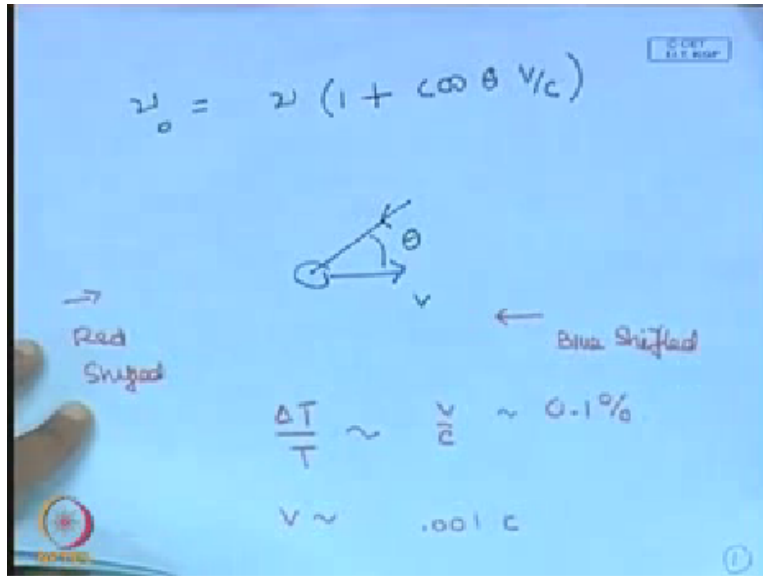 © CET
I.I.T. KGP
ν₀ = ν (1 + cos θ v/c)
θ
v
Red
Shifted
Blue Shifted
ΔT/T ~ v/c ~ 0.1%
v ~ .001 c
NPTEL
1